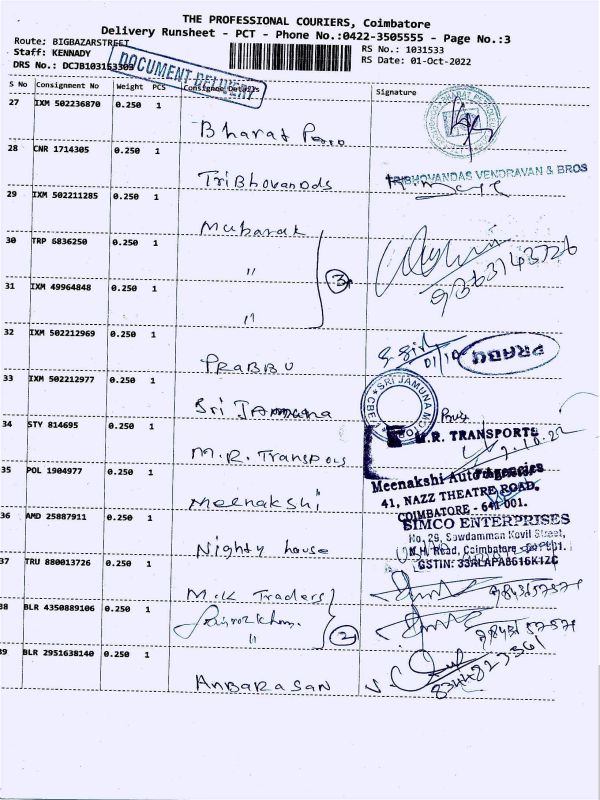 THE PROFESSIONAL COURIERS, Coimbatore
Delivery Runsheet - PCT - Phone No.:0422-3505555 - Page No.:3
Route: BIGBAZARSTREET
Staff: KENNADY
RS No.: 1031533
DRS No.: DCJB1031533303
RS Date: 01-Oct-2022
DOCUMENT DELIVERY
S No Consignment No Weight PCS Consignee Details Signature
27 IXM 502236870 0.250 1
Bharat
28 CNR 1714305 0.250 1
TriBhovanods
TRIBHOVANDAS VENDRAVAN & BROS
29 IXM 502211285 0.250 1
Mubarak
30 TRP 6836250 0.250 1
"
3
9363143726
31 IXM 49964848 0.250 1
"
32 IXM 502212969 0.250 1
PRABBU
01/10
PRABU
33 IXM 502212977 0.250 1
Sri Jamuna
SRI JAMUNA
34 STY 814695 0.250 1
M.R. Transpots
M.R. TRANSPORTS
35 POL 1904977 0.250 1
Meenakshi
Meenakshi Auto Agencies
41, NAZZ THEATRE ROAD,
COIMBATORE - 641 001.
36 AMD 25887911 0.250 1
Nighty house
SIMCO ENTERPRISES
No. 29, Sowdamman Kovil Street,
N.H. Road, Coimbatore
GSTIN: 33ALAPA8616K1ZC
37 TRU 880013726 0.250 1
M.K Traders
9843157571
38 BLR 4350889106 0.250 1
"
2
9843157571
39 BLR 2951638140 0.250 1
ANBARASAN